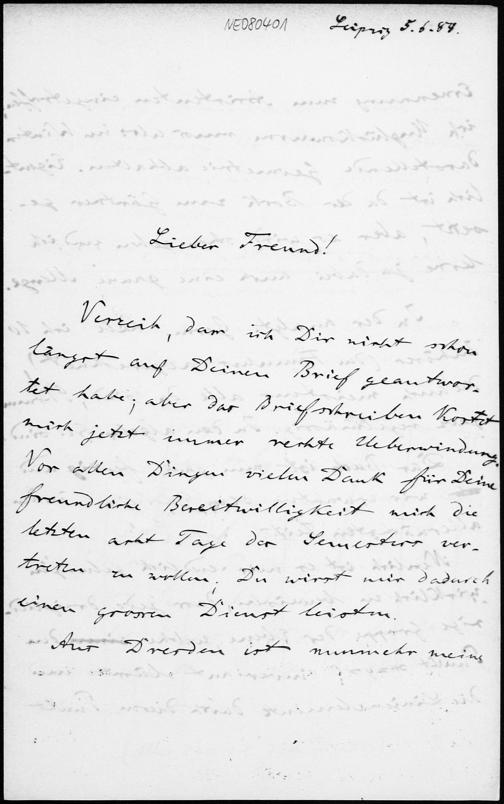 NE080401
Leipzig 5.6.84.
Lieber Freund!
Verzeih, dass ich Dir nicht schon
längst auf Deinen Brief geantwor-
tet habe; aber das Briefschreiben kostet
mich jetzt immer rechte Ueberwindung.
Vor allen Dingen vielen Dank für Deine
freundliche Bereitwilligkeit mich die
letzten acht Tage des Semesters ver-
treten zu wollen; Du wirst mir dadurch
einen grossen Dienst leisten.
Aus Dresden ist nunmehr meine